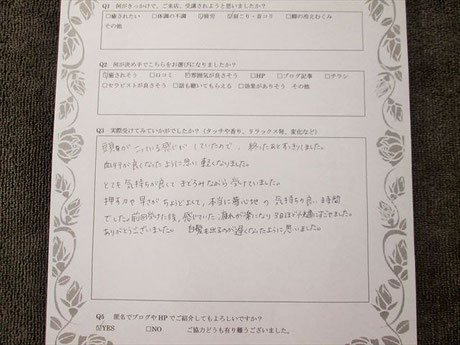 Q1 何がきっかけで、ご来店、受講されようと思いましたか？
□癒されたい □体調の不調 ☑疲労 ☑肩こり・首コリ □脚の冷えむくみ
その他
Q2 何が決め手でこちらをお選びになりましたか？
☑癒されそう □口コミ ☑雰囲気が良さそう □HP □ブログ記事 □チラシ
□セラピストが良さそう □話も聴いてもらえる □効果がありそう その他
Q3 実際受けてみていかがでしたか？（タッチや香り、リラックス時、変化など）
頭がこっている感じがしていたので、終ったあとすっきりしました。
血行が良くなったように思い軽くなりました。
とても気持ちが良くてまどろみながら受けていました。
押す力や早さがちょうどよくて、本当に夢心地の気持ちの良い時間
でした。前回受けた後、感じていた疲れが楽になり3日ほど快適にすごせました。
ありがとうございました。 白髪も出るのが遅くなったように思いました。
Q5 匿名でブログやHPでご紹介してもよろしいですか？
☑YES □NO ご協力どうも有り難うございました。